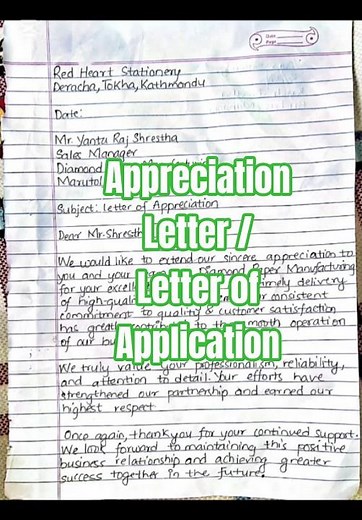 Date
Page
Red Heart Stationery
Deracha, Tokha, Kathmandu
Date:
Mr. Yantu Raj Shrestha
Sales Manager
Diamond
Marutol
Appreciation
Letter /
Letter of
Application
Subject: letter of Appreciation
Dear Mr. Shresth
We would like to extend our sincere appreciation to
you and your Diamond Paper Manufacturing
for your excell timely delivery
of high-quali consistent
commitment to quality & customer satisfaction
has great to the smooth operation
of our bu
We truly value your professionalism, reliability,
and attention to detail. Your efforts have
strengthened our partnership and earned our
highest respect
Once again, thank you for your continued support.
We look forward to maintaining this positive
business relationship and achieving greater
success together in the future.